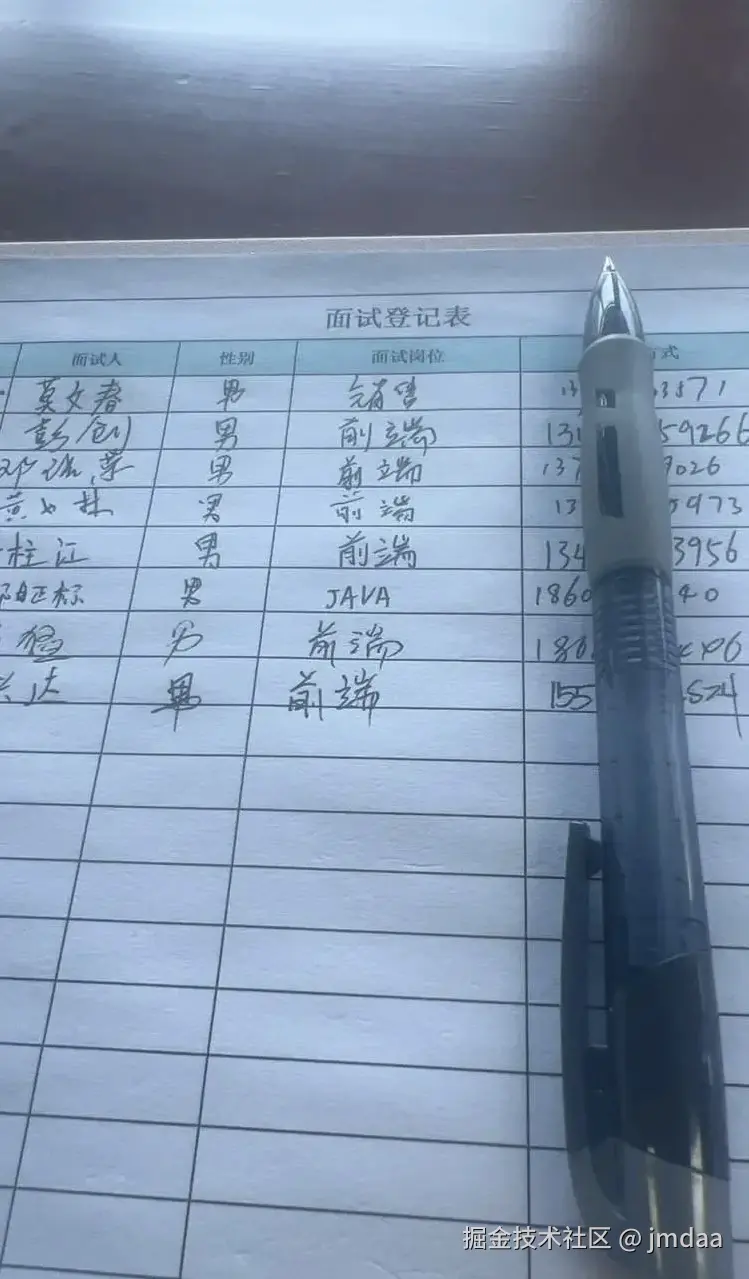 面试登记表
面试人 性别 面试岗位 式
莫文春 男 销售 13 3571
彭创 男 前端 131 59266
邓 男 前端 137 9026
黄文林 男 前端 13 5973
桂江 男 前端 134 3956
标 男 JAVA 1860 40
猛 男 前端 186
达 男 前端 155 524
掘金技术社区 @ jmdaa